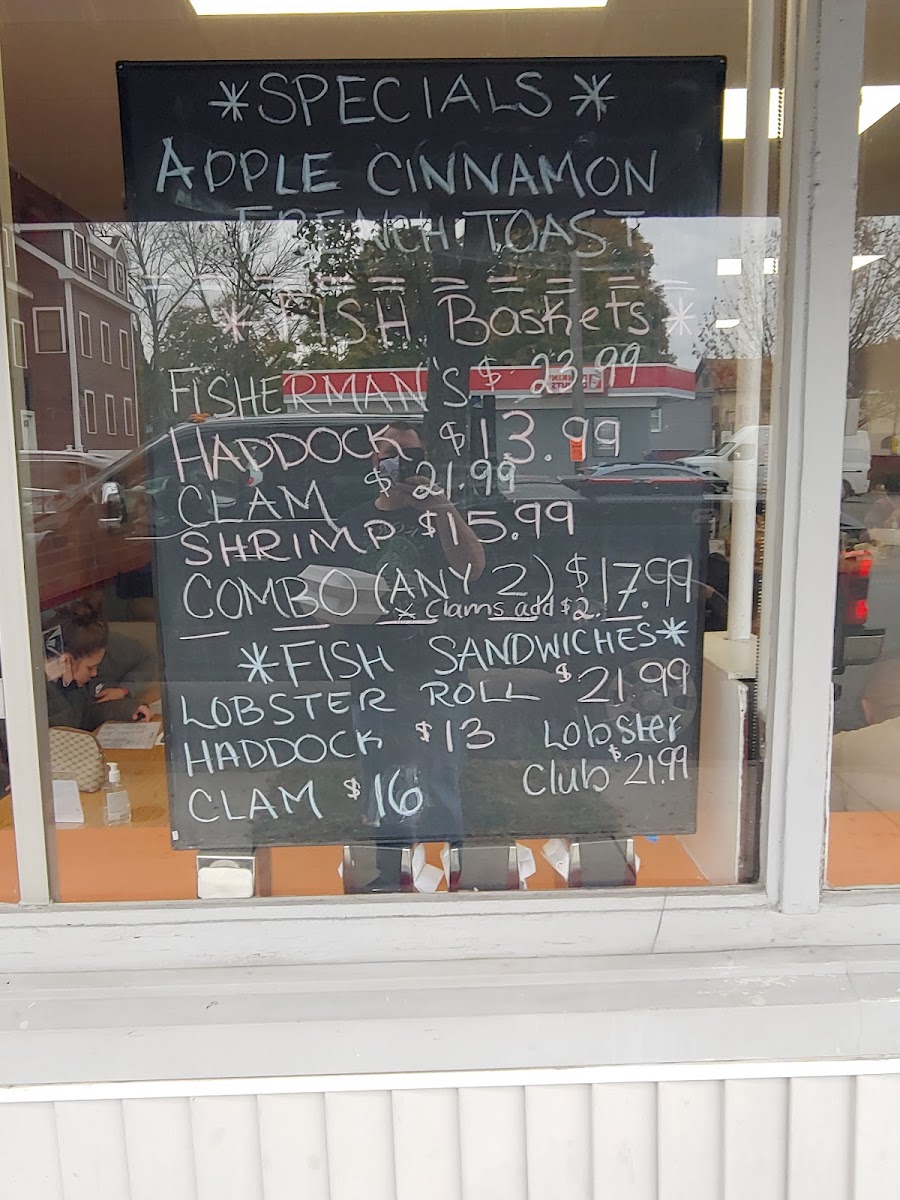 *SPECIALS*
APPLE CINNAMON
FRENCH TOAST
*FISH Baskets*
FISHERMAN'S $23.99
HADDOCK $13.99
CLAM $21.99
SHRIMP $15.99
COMBO (ANY 2) $17.99
* Clams add $2.
*FISH SANDWICHES*
LOBSTER ROLL $21.99
HADDOCK $13
CLAM $16
Lobster
Club $21.99